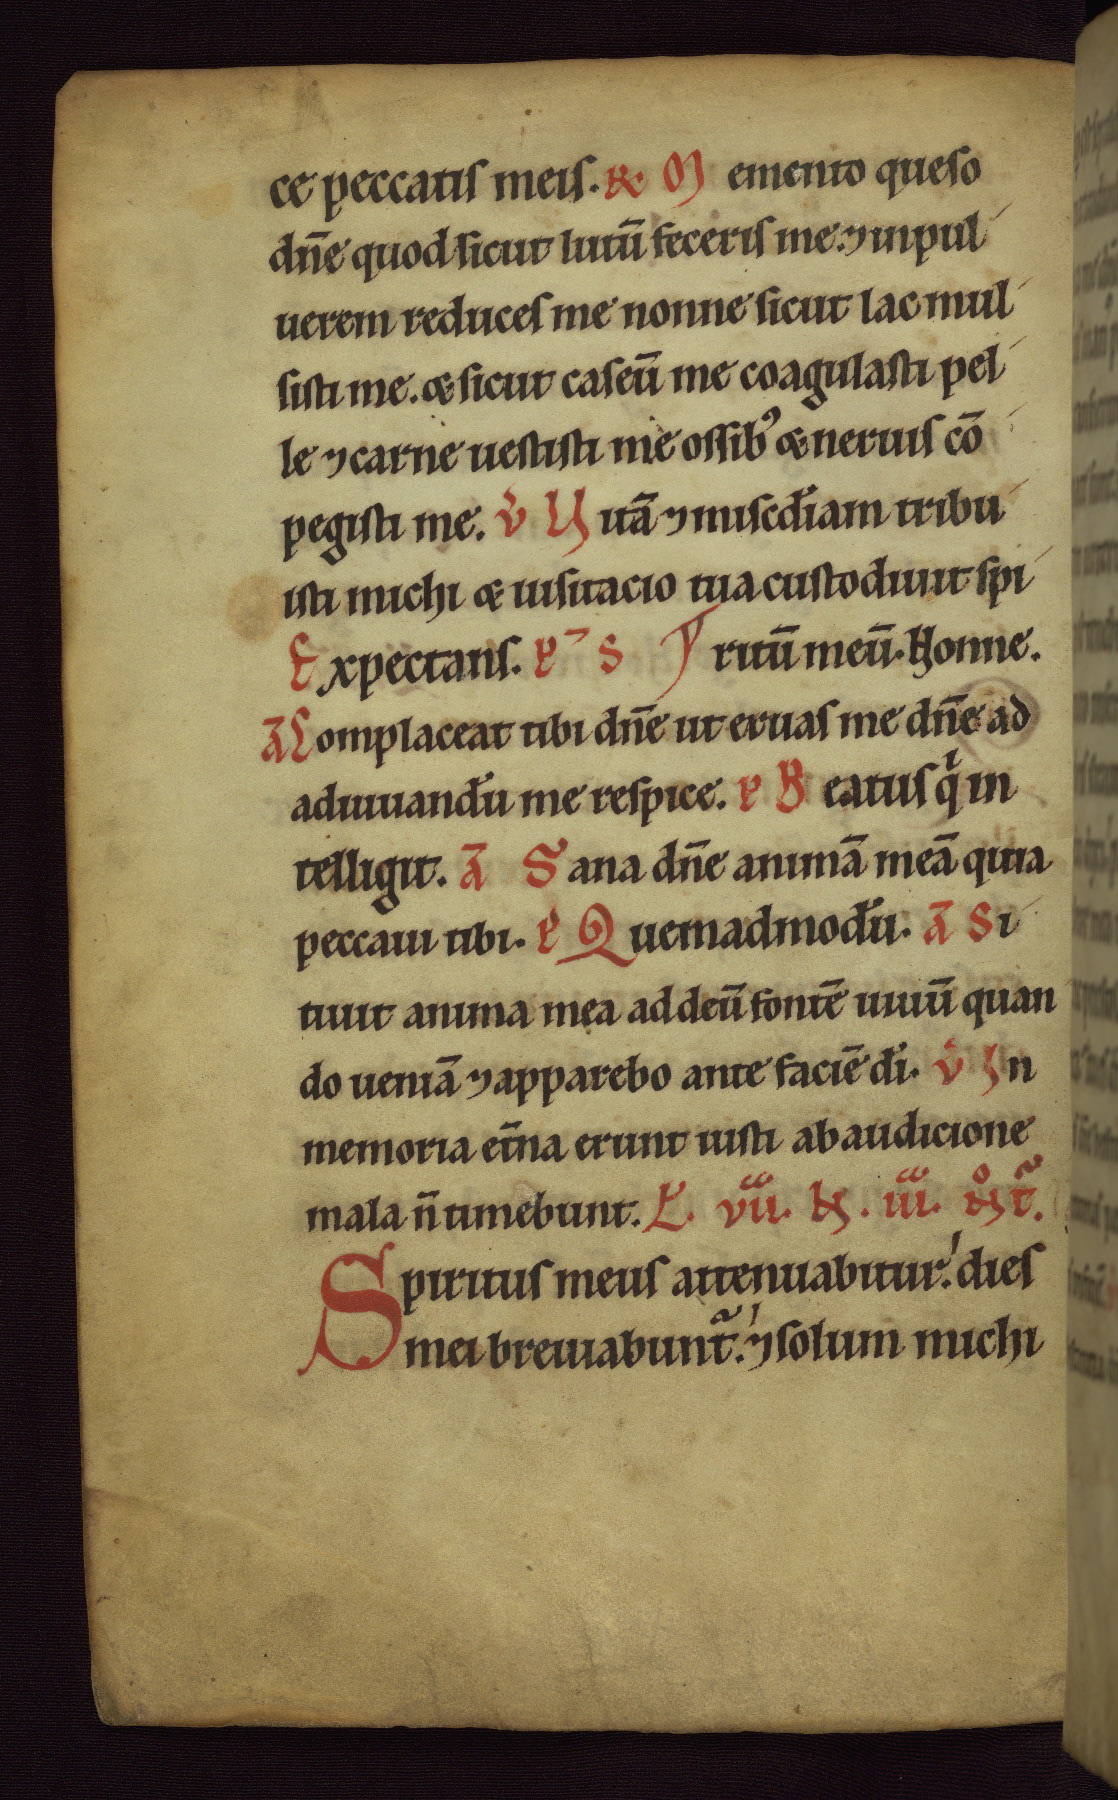 ce peccatis meis. R. Memento queso
dn̄e quod sicut lutū feceris me. ⁊ in pul
uerem reduces me nonne sicut lac mul
sisti me. & sicut caseū me coagulasti pel
le ⁊ carne uestisti me ossibꝰ & neruis cō
pegisti me. v̄ Uitā ⁊ miscd̄iam tribu
isti michi & uisitacio tua custodiuit spi
Expectans. P̄ S ritū meū. Nonne.
ā Complaceat tibi dn̄e ut eruas me dn̄e ad
adiuuand̄u me respice. P Beatus qͥ in
telligit. ā Sana dn̄e animā meā quia
peccaui tibi. P Quemadmod̄u. ā Si
tiuit anima mea ad deū fontē uiuū quan
do ueniā ⁊ apparebo ante faciē d̄i. v̄ In
memoria et̄na erunt iusti ab audicione
mala n̄ timebunt. L. viii. K. iii. t̄.
Spiritus meus attenuabitur. dies
mei breuiabunt̄. ⁊ solum michi